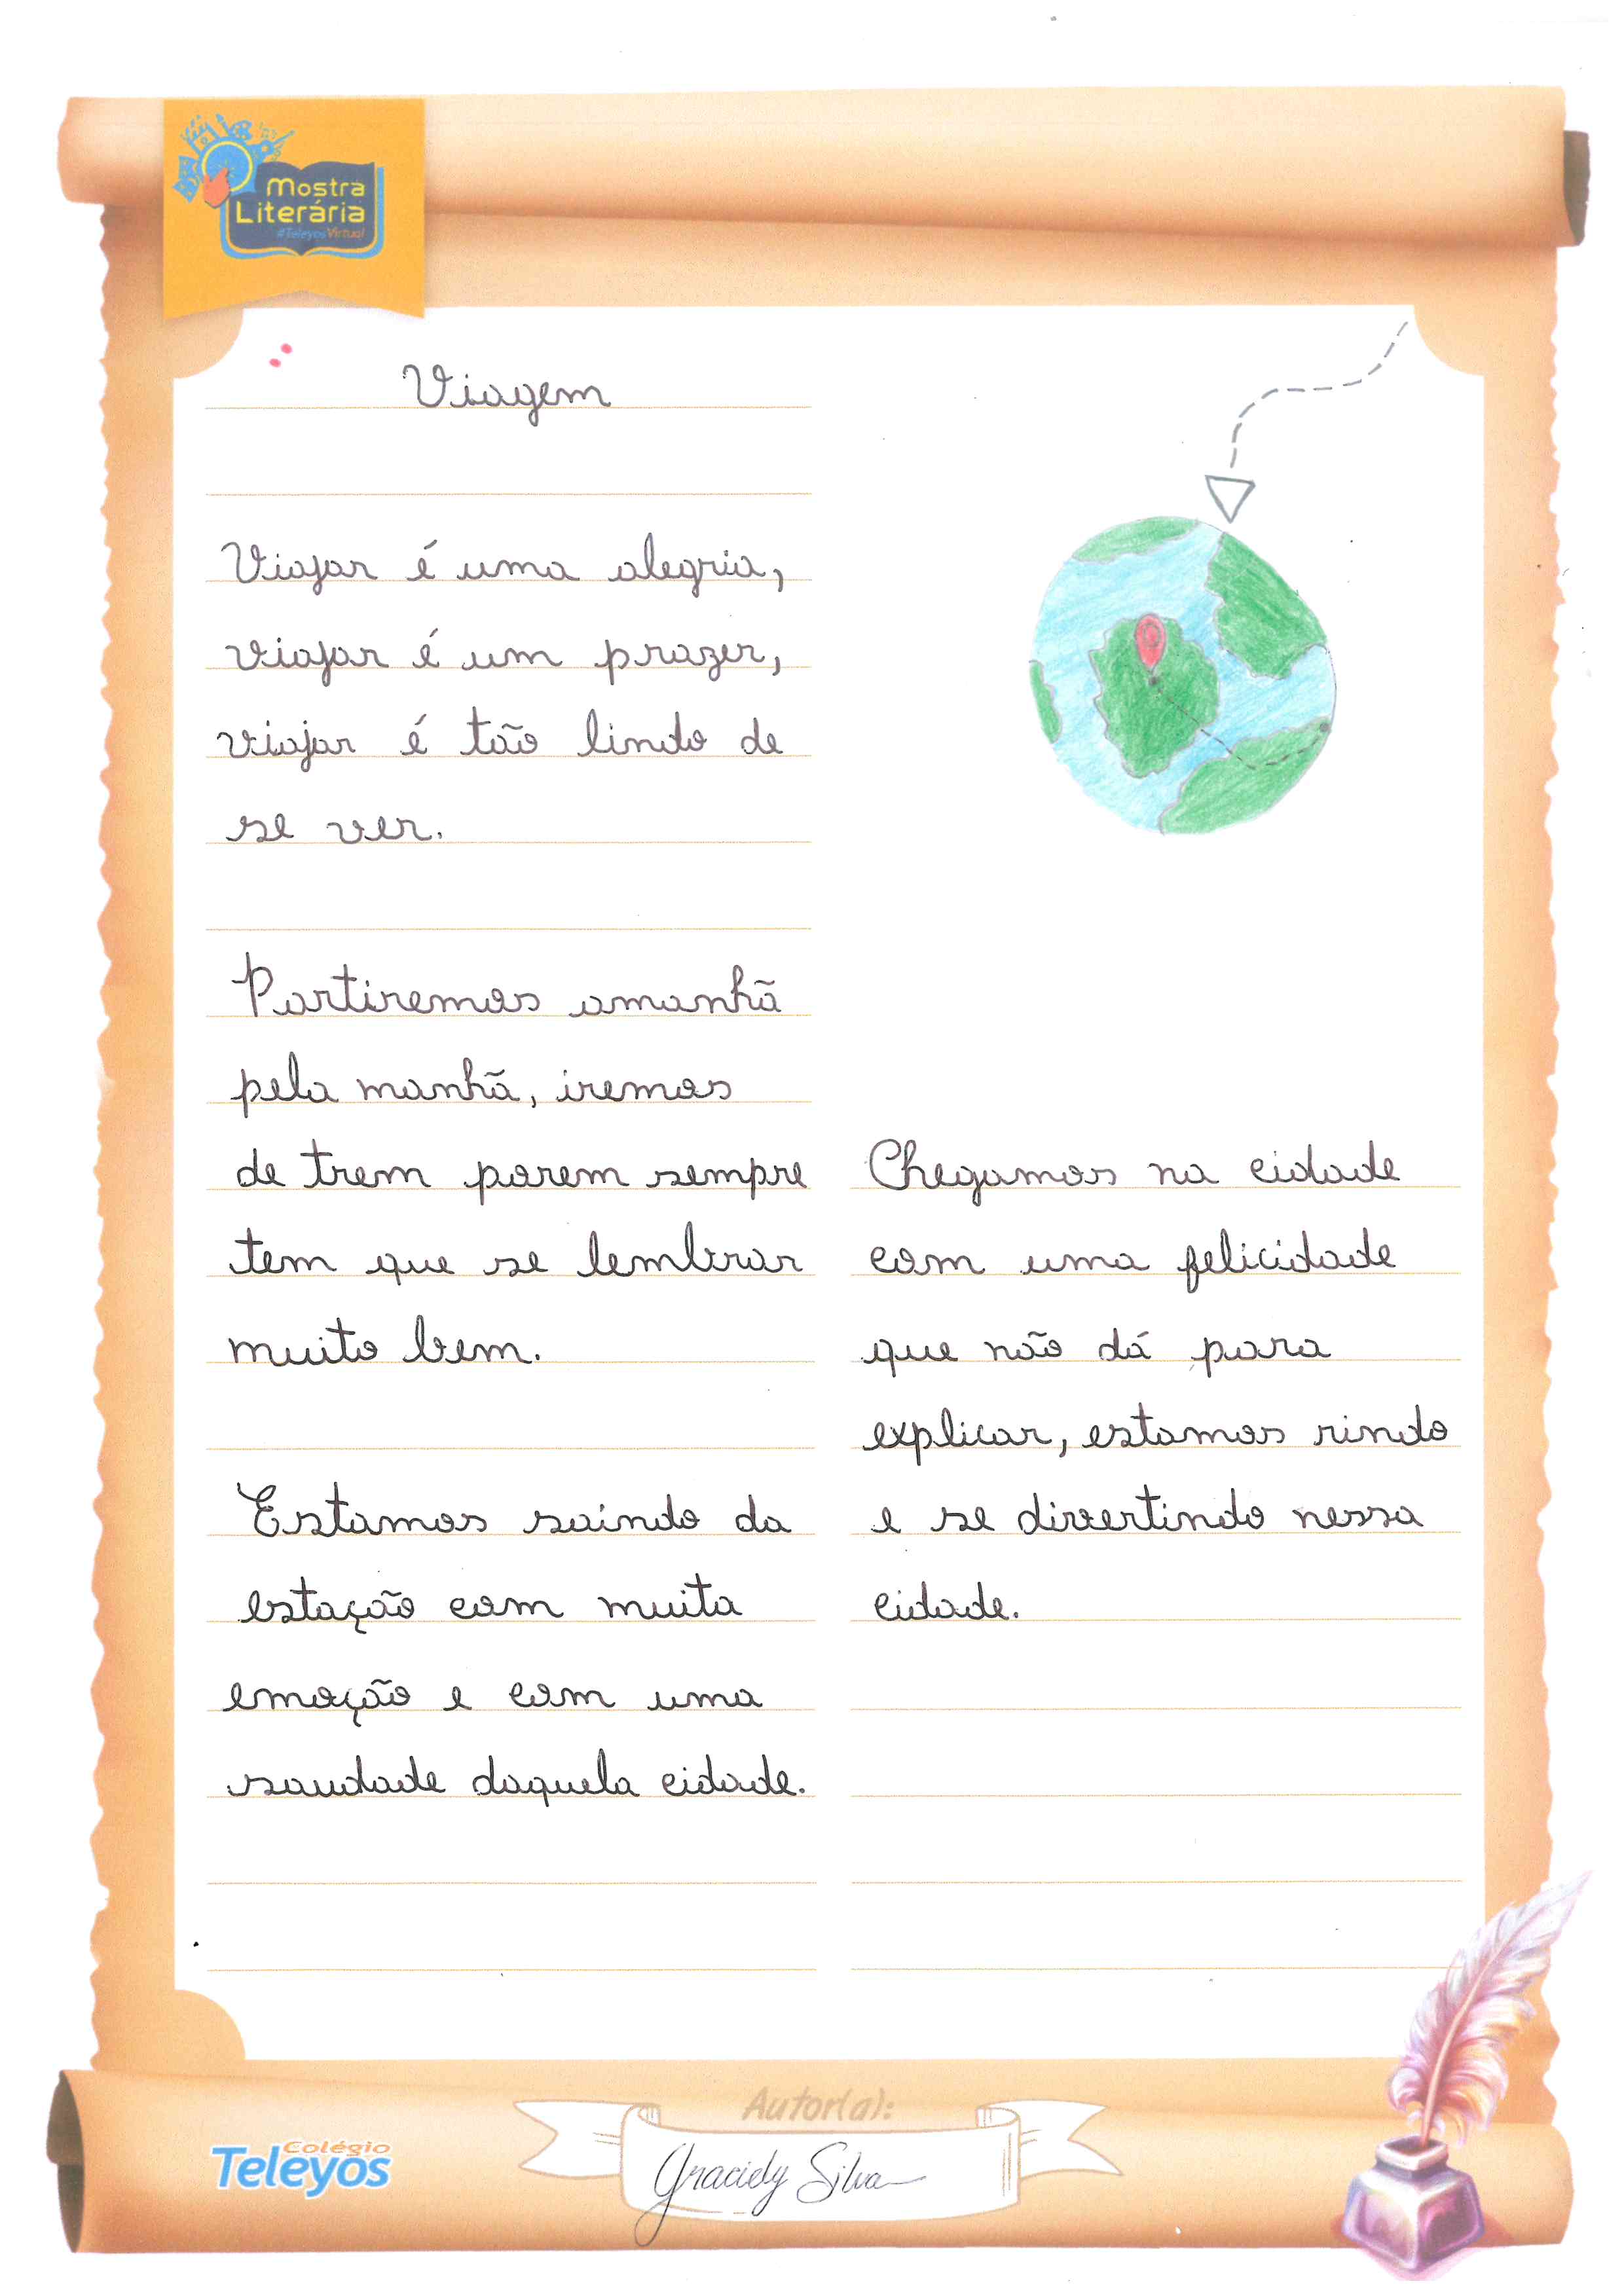 Mostra
Literária
#TeleyosVirtual
Viagem
Viajar é uma alegria,
viajar é um prazer,
viajar é tão lindo de
se ver.
Partiremos amanhã
pela manhã, iremos
de trem porem sempre
tem que se lembrar
muito bem.
Estamos saindo da
estação com muita
emoção e com uma
saudade daquela cidade.
Chegamos na cidade
com uma felicidade
que não dá para
explicar, estamos rindo
e se divertindo nessa
cidade.
Autor(a):
Graciely Silva
Colégio
Teleyos